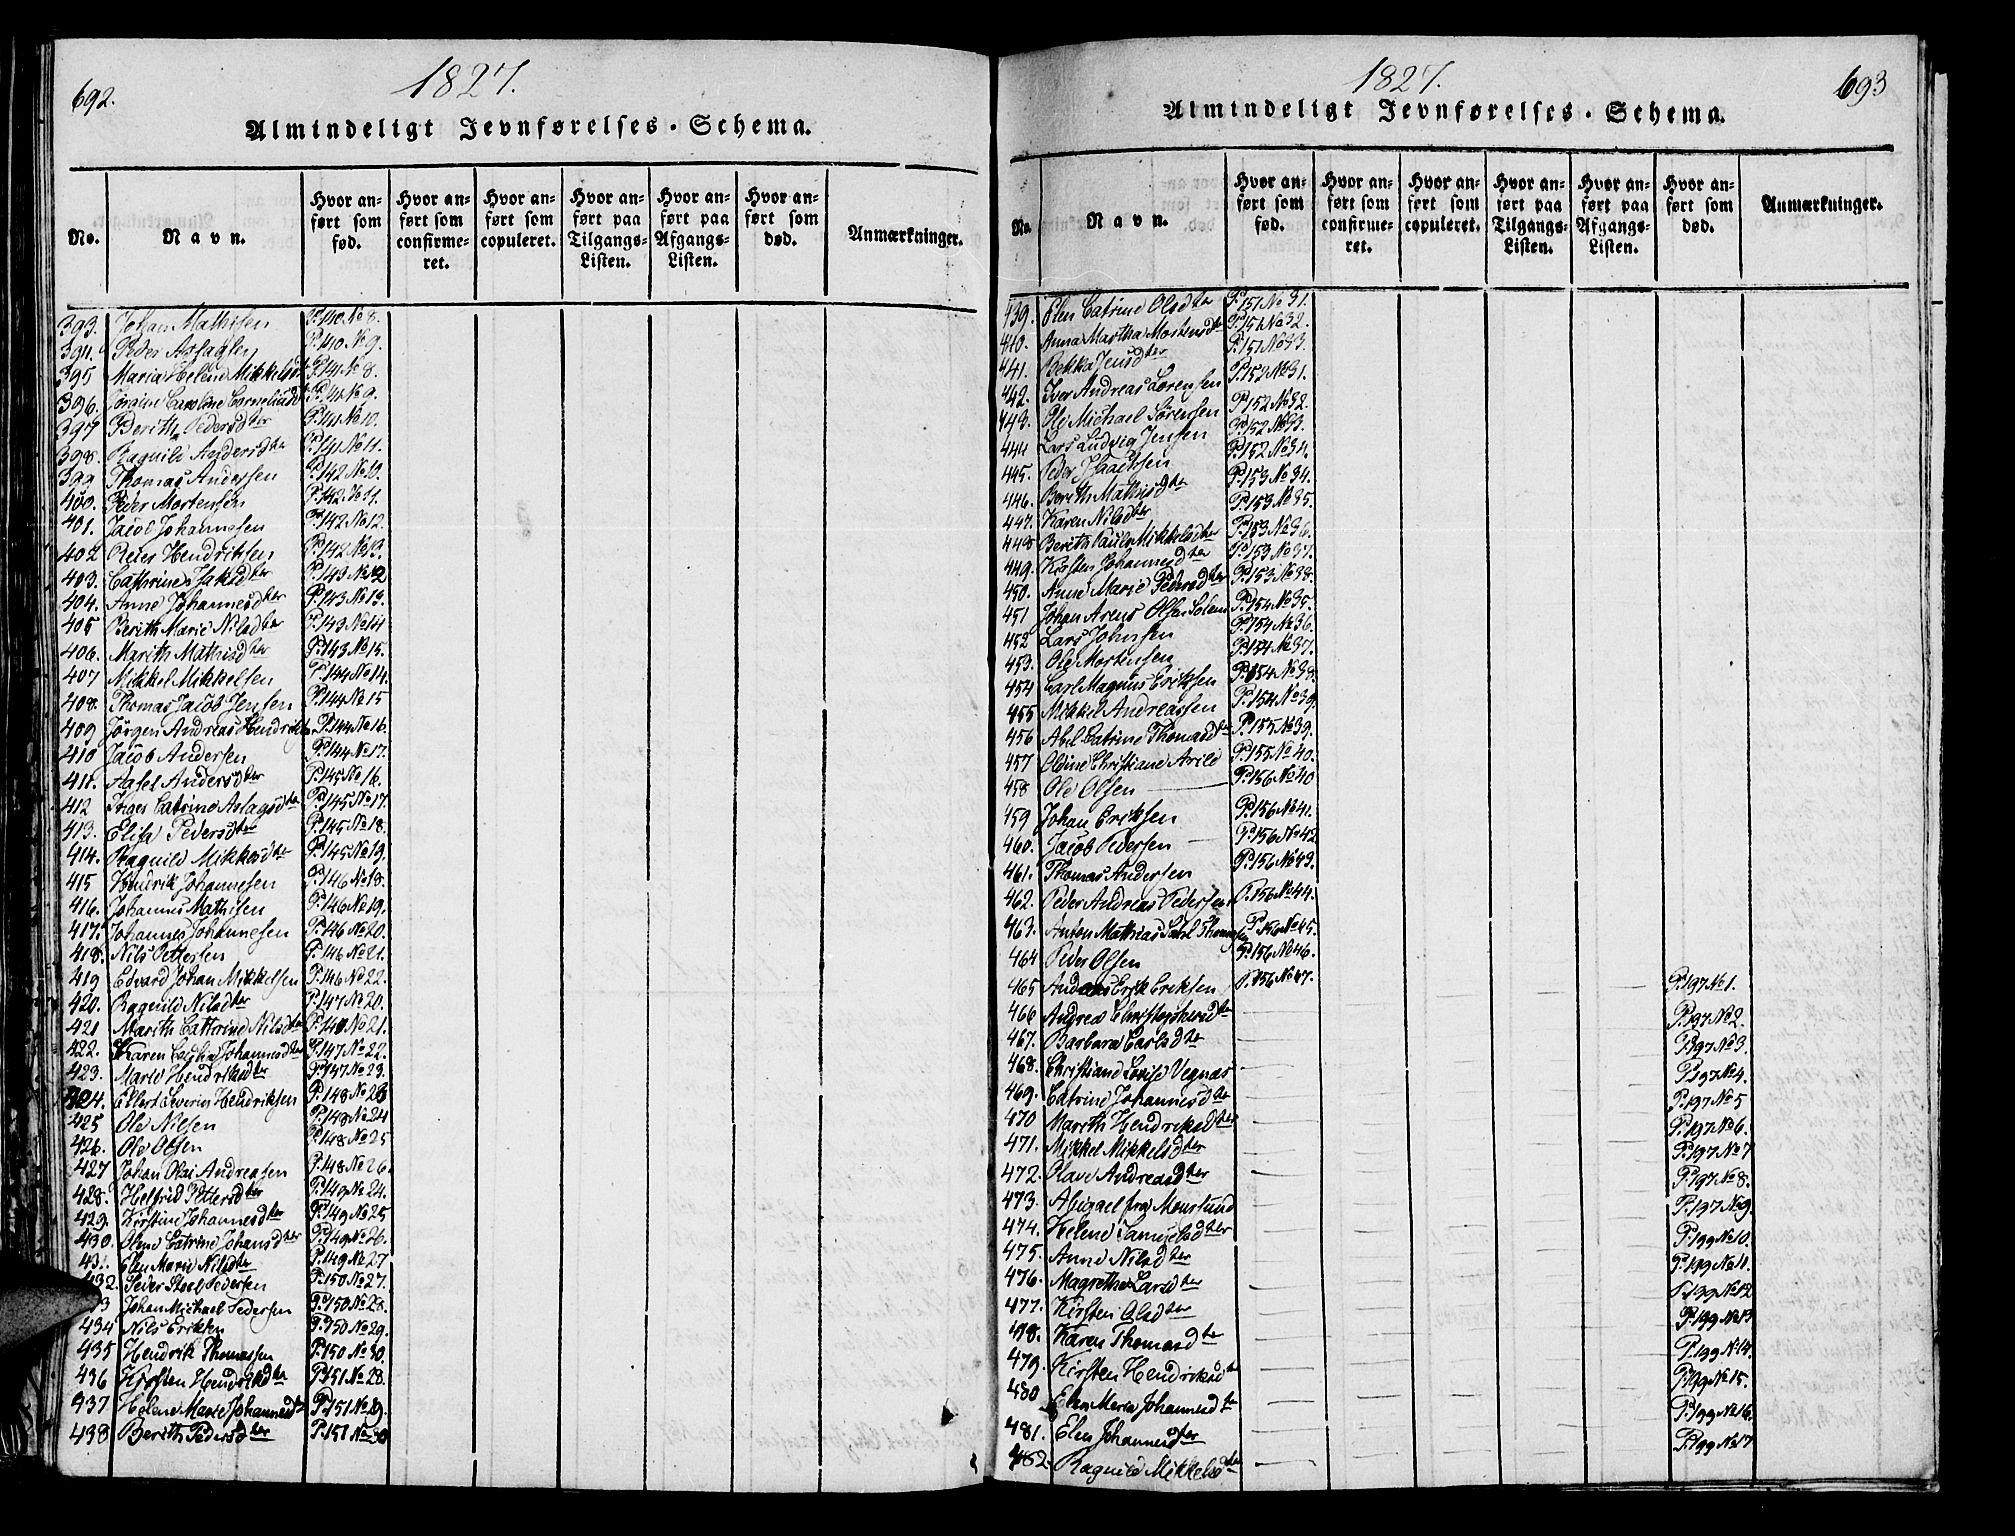 692.
1827.
Almindeligt Jevnførelses-Schema.
No. | Navn. | Hvor anført som fød. | Hvor anført som confirmeret. | Hvor anført som copuleret. | Hvor anført paa Tilgangs-Listen. | Hvor anført paa Afgangs-Listen. | Hvor anført som død. | Anmærkninger.
393. Johan Mathisen P.140 No 8.
394. Peder Aslagsen P.140 No 9.
395 Maria Helene Mikkelsd P.141 No 8.
396. Caroline Corneliusd P.141 No 9.
397 Berith Pedersdter P.141 No 10.
398. Ragnild Andersdter P.141 No 11.
399 Thomas Andersen P.142 No 10.
400. Peder Mortensen P.142 No 11.
401. Jacob Johannesen P.142 No 12.
402 Hendriksen P.142 No 13.
403. Cathrine Isaksdter P.143 No 12
404. Anne Johannesdter P.143 No 13.
405 Berith Marie Nilsdter P.143 No 14
406. Marith Mathisdter P.143 No 15.
407 Mikkel Mikkelsen P.144 No 14.
408. Thomas Jacob Jensen P.144 No 15
409 Jørgen Andreas Hendriks P.144 No 16.
410 Jacob Andersen P.144 No 17.
411. Andersdter P.145 No 16.
412 Inger Catrine Aslagsdter P.145 No 17.
413. Elisa Pedersdter P.145 No 18.
414. Ragnild Mikkelsdter P.145 No 19.
415 Hendrik Johannesen P.146 No 18.
416. Johannes Mathisen P.146 No 19.
417. Johannes Johannesen P.146 No 20.
418. Nils Pettersen P.146 No 21.
419 Edvard Johan Mikkelsen P.146 No 22.
420. Ragnild Nilsdter P.147 No 20.
421 Marith Cathrine Nilsdter P.147 No 21.
422. Karen Johannesdter P.147 No 22.
423. Marie Hendriksdter P.147 No 23.
424. Ellert Severin Hendriksen P.148 No 23
425 Ole Nilsen P.148 No 24
426. Ole Olsen P.148 No 25
427 Johan Olai Andreasen P.148 No 26.
428. Helfrid Pettersdter P.149 No 24.
429. Kirstine Johannesdter P.149 No 25
430. Catrine Johansdter P.149 No 26.
431. Elen Marie Nilsdter P.149 No 27
432. Peder Pedersen P.150 No 27.
433 Johan Michael Pedersen P.150 No 28.
434 Nils Eriksen P.150 No 29.
435 Hendrik Thomassen P.150 No 30.
436 Kirsten Hendriksdter P.151 No 28.
437 Helene Marie Johannesdtr P.151 No 29.
438 Berith Pedersdter P.151 No 30
693
1827.
Almindeligt Jevnførelses-Schema.
No. | Navn. | Hvor anført som fød. | Hvor anført som confirmeret. | Hvor anført som copuleret. | Hvor anført paa Tilgangs-Listen. | Hvor anført paa Afgangs-Listen. | Hvor anført som død. | Anmærkninger.
439. Elen Catrine Olsdter P.151 No 31.
440. Anna Martha Mortensdtr P.151 No 32.
441. Bekka Jensdter P.151 No 33.
442. Iver Andreas Lorensen P.152 No 31.
443. Ole Michael Sørensen P.152 No 32.
444 Lars Ludvig Jensen P.152 No 33.
445. Peder Isaacksen P.152 No 34.
446. Berith Mathisdter P.153 No 34.
447. Karen Nilsdter P.153 No 35.
448 Berith Mikkelsdter P.153 No 36.
449. Kirsten Johannesdter P.153 No 37.
450. Anne Marie Pedersdter P.153 No 38.
451 Johan Arens Olsen P.154 No 35.
452 Lars Johnsen P.154 No 36.
453. Ole Mortensen P.154 No 37.
454 Carl Magnus Eriksen P.154 No 38.
455 Mikkel Andreassen P.154 No 39.
456 Abel Catrine Thomasdter P.155 No 39.
457 Oldine Christiane Arild P.155 No 40.
458 Ole Olsen P.156 No 40
459 Johan Eriksen P.156 No 41.
460. Jacob Pedersen P.156 No 42
461. Thomas Andersen P.156 No 43.
462. Peder Andreas Pedersen P.156 No 44.
463. Anton Mathias Carl P.156 No 45.
464 Peder Olsen P.156 No 46.
465 Andreas Erik Eriksen P.156 No 47. P.197 No 1.
466 Andrea Christophersdter P.197 No 2.
467. Barbara Carlsdter P.197 No 3.
468. Christiane Lovise Vegnær P.197 No 4.
469. Catrine Johannesdter P.197 No 5
470 Marith Hendriksdter P.197 No 6.
471. Mikkel Mikkelsdter P.197 No 7
472. Olave Andreasdter P.197 No 8.
473. Abigael fra P.197 No 9.
474. Helene Samuelsdter P.199 No 10.
475. Anne Nilsdter P.199 No 11.
476. Magrethe Larsdter P.199 No 12
477. Kirsten Olsdter P.199 No 13
478. Karen Thomasdter P.199 No 14.
479. Kirsten Hendriksdtr P.199 No 15.
480 Elen Maria Johannesdtr P.199 No 16.
481. Elen Johannesdter P.199 No 17
482. Ragnild Mikkelsdter